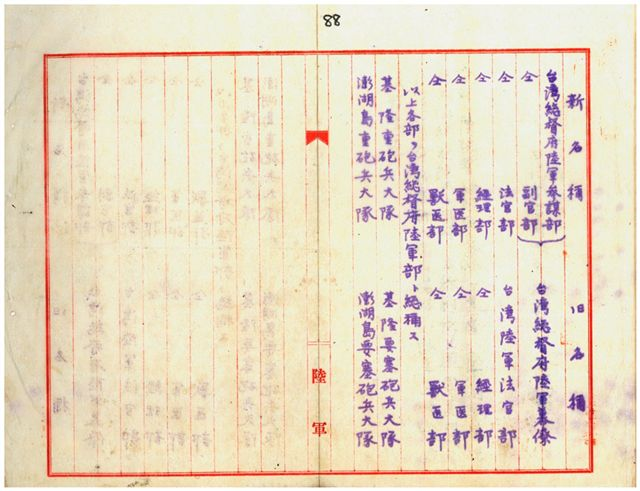 88
新名稱　旧名稱
台湾総督府陸軍参謀部　台湾総督府陸軍幕僚
仝　副官部
仝　法官部　台湾陸軍法官部
仝　経理部　仝　経理部
仝　軍医部　仝　軍医部
仝　獣医部　仝　獣医部
以上各部ヲ台湾総督府陸軍部ト総稱ス
基隆重砲兵大隊　基隆要塞砲兵大隊
澎湖島重砲兵大隊　澎湖島要塞砲兵大隊
陸軍